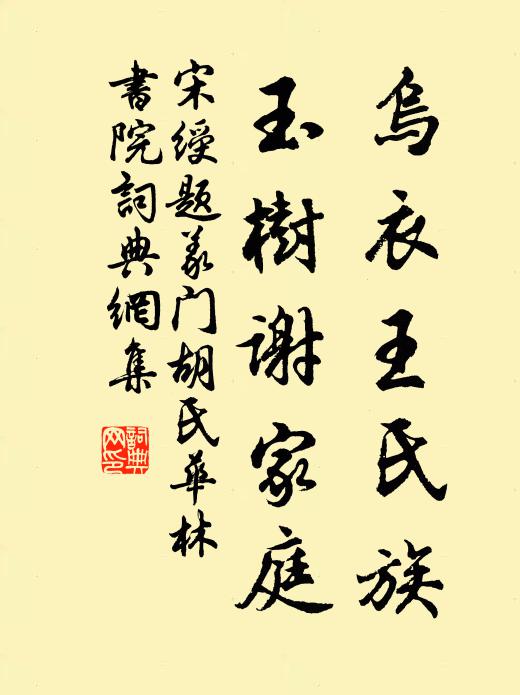 烏衣王氏族
玉樹謝家庭
宋綬題義门胡氏華林
書院詞典網集
詞典
网印